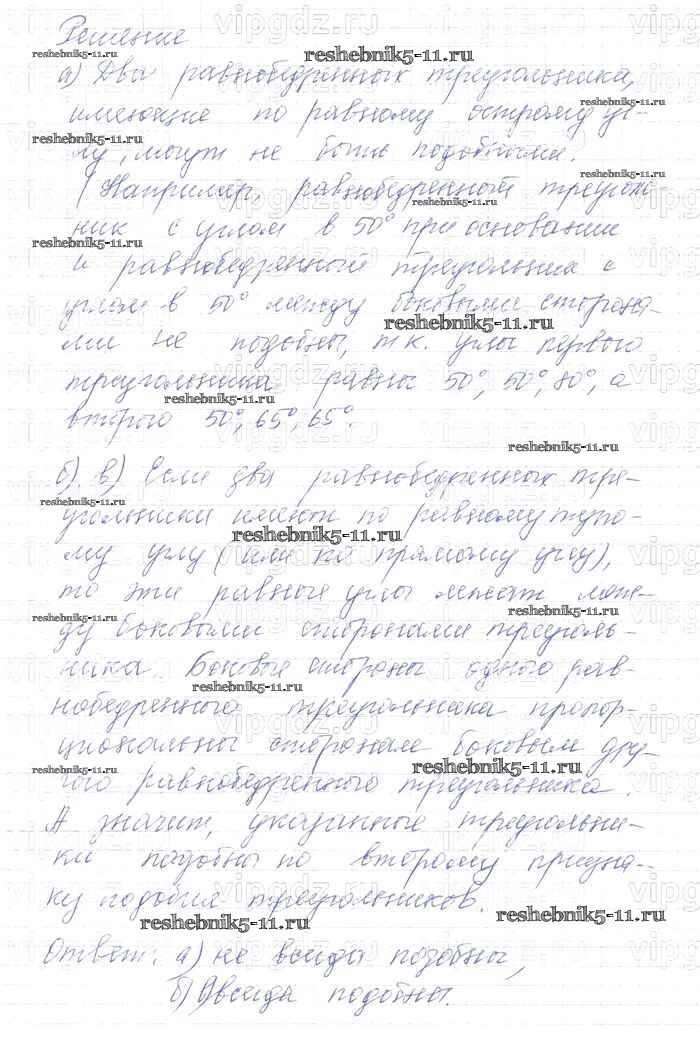 Решение
а) Два равнобедренных треугольника,
имеющие по равному острому уг-
лу, могут не быть подобными.
(Например, равнобедренный треуголь-
ник с углом в 50° при основании
и равнобедренный треугольник с
углом в 50° между боковыми сторона-
ми не подобны, т.к. углы первого
треугольника равны 50°, 50°, 80°, а
второго 50°, 65°, 65°.
б), в) Если два равнобедренных тре-
угольники имеют по равному тупо-
му углу (или по прямому углу),
то эти равные углы лежат меж-
ду боковыми сторонами треуголь-
ника. Боковые стороны одного рав-
нобедренного треугольника пропор-
циональны сторонам боковым дру-
гого равнобедренного треугольника.
А значит, указанные треугольни-
ки подобны по второму призна-
ку подобия треугольников.
Ответ: а) не всегда подобны,
б) всегда подобны.
reshebnik5-11.ru
vipgdz.ru